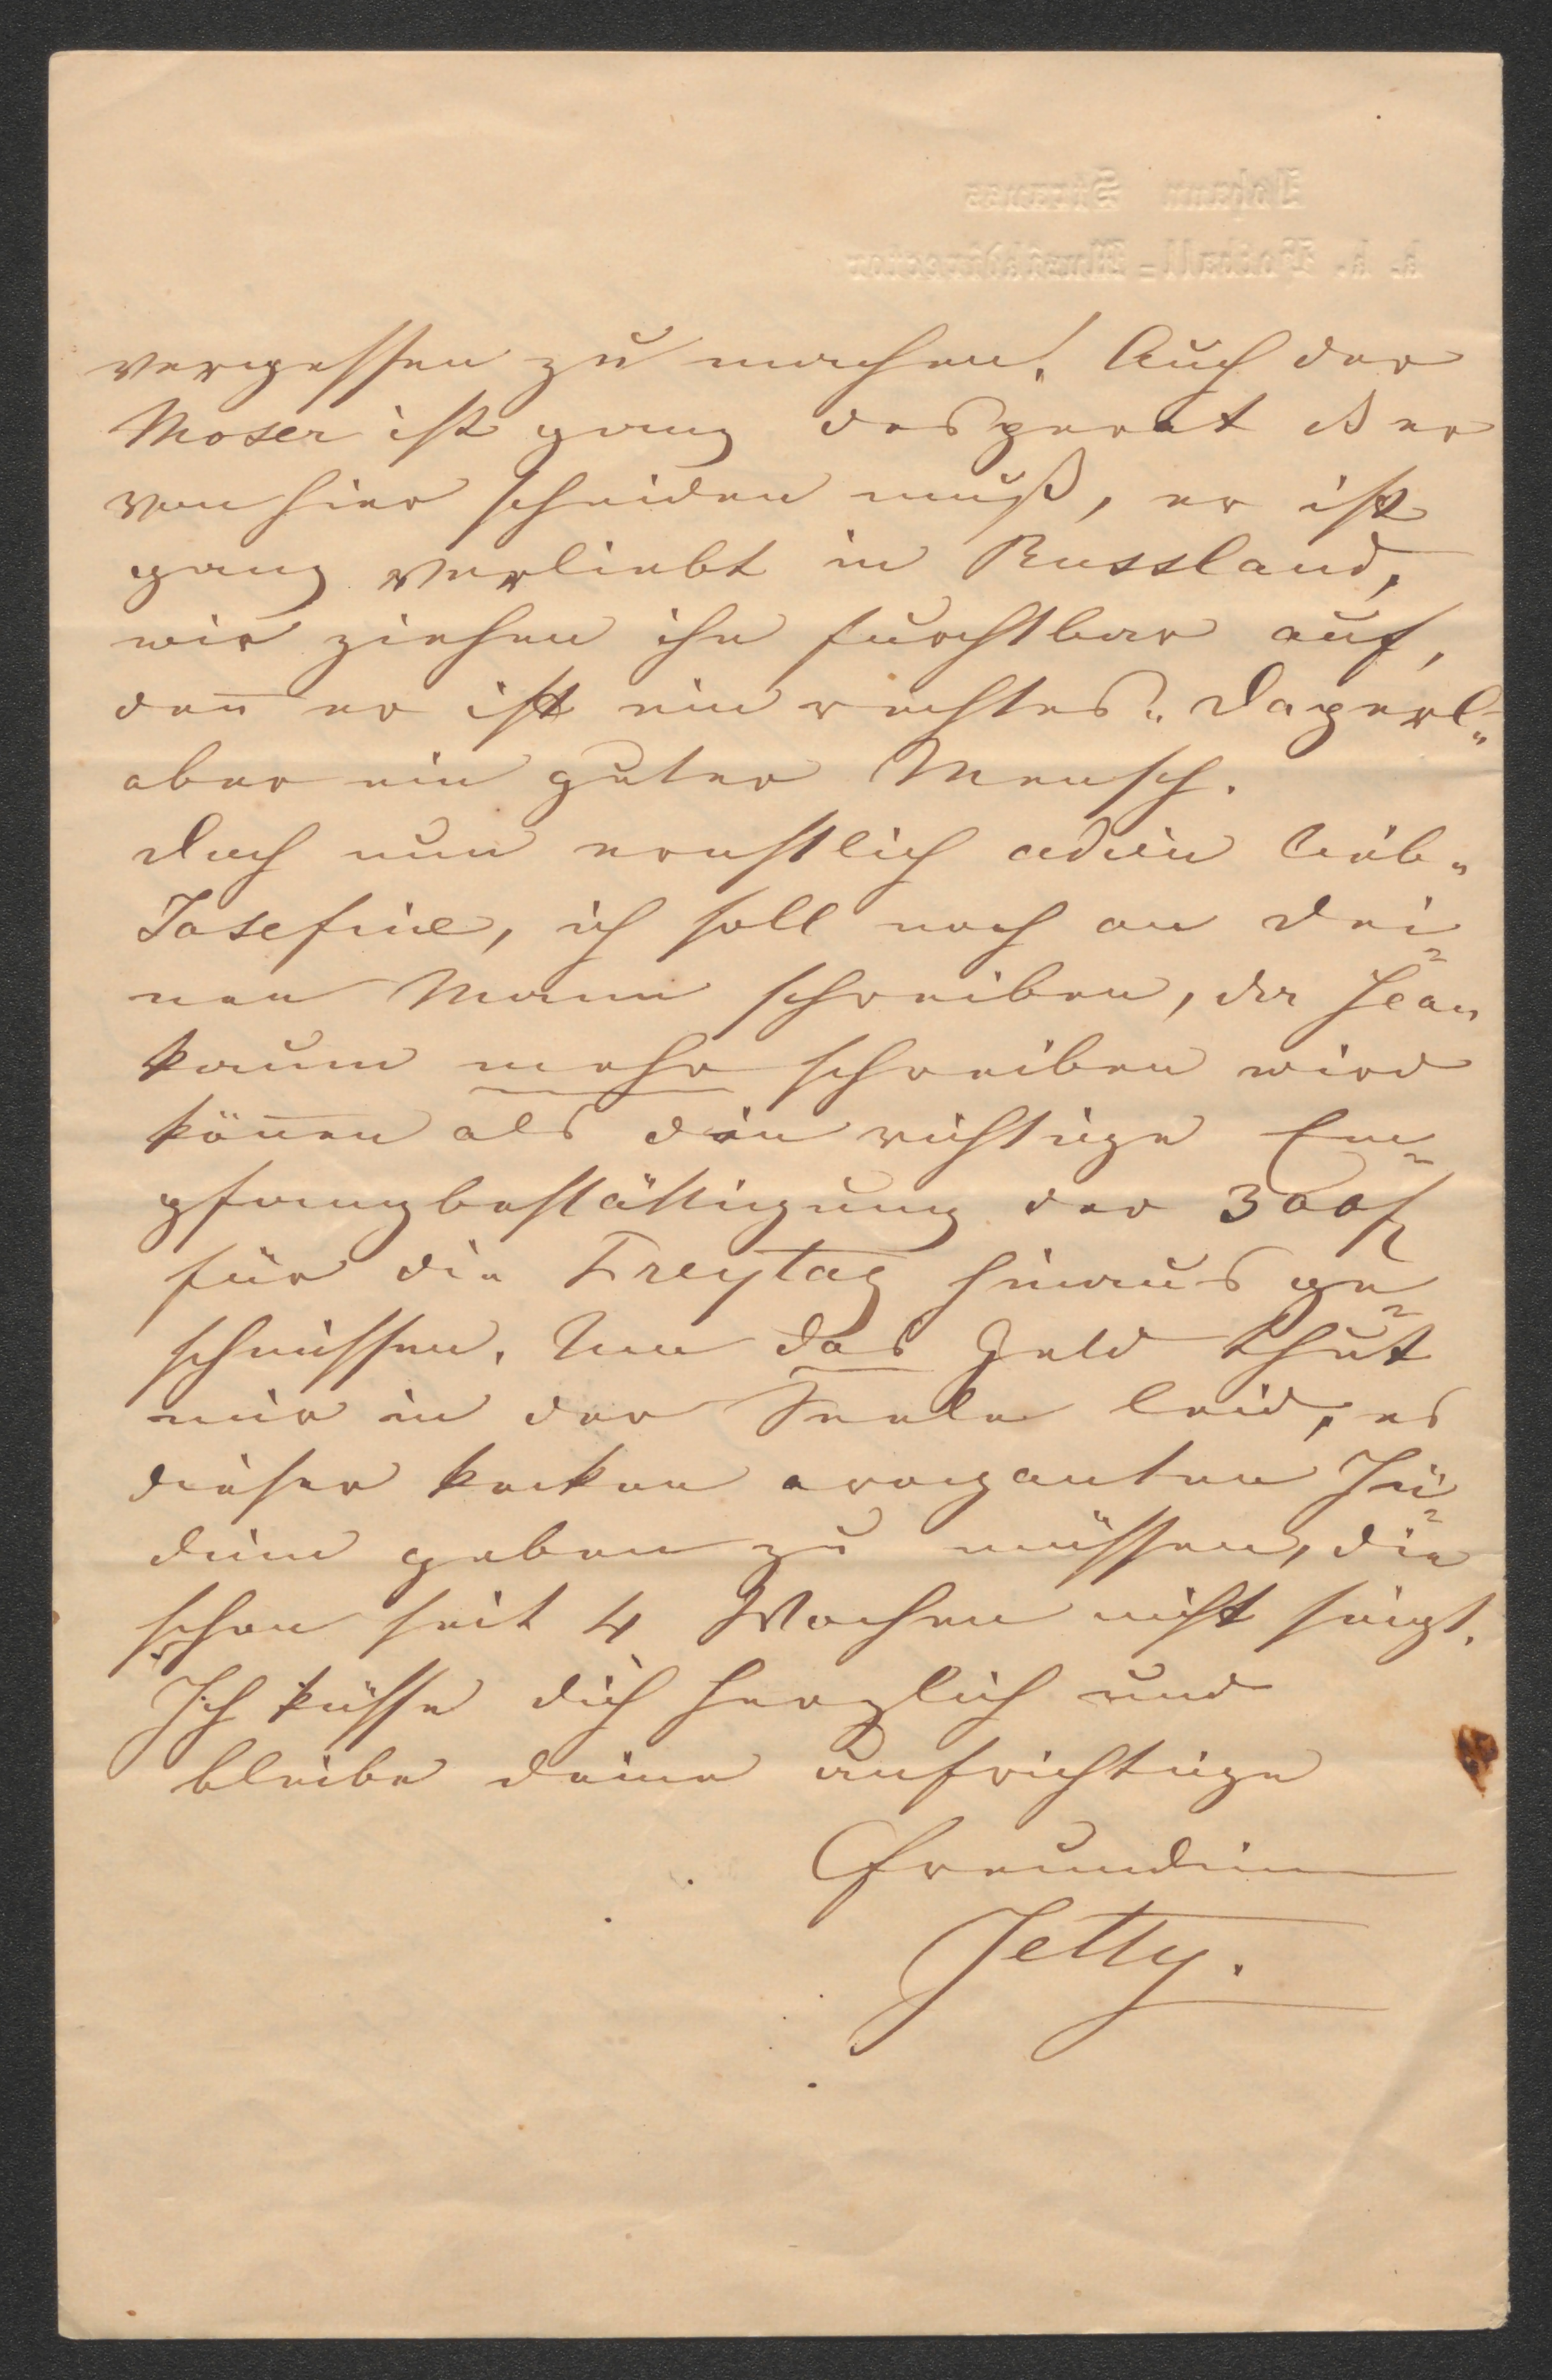 Johann Strauss
k. k. Hofball-Musikdirector
vergessen zu machen! Auch der
Moser ist ganz desperat daß er
von hier scheiden muß, er ist
ganz verliebt in Russland,
wir ziehen ihn furchtbar auf,
den̅ er ist ein rechtes „Daperl“
aber ein guter Mensch.
Doch nun ernstlich adieu liebe
Josefine, ich soll noch an Dei-
nen Mann schreiben, da Jean
kaum mehr schreiben wird
kön̅en als die richtige Em-
pfangbestättigung der 300 f
für die Freytag hinausge-
schmissen. Nun das Geld thut
mir in der Seele leid, es
dieser kecken aroganten Jü-
din geben zu müssen, die
schon seit 4 Wochen nicht singt.
Ich küsse dich herzlich und
bleibe deine aufrichtige
Freundin
Jetty.